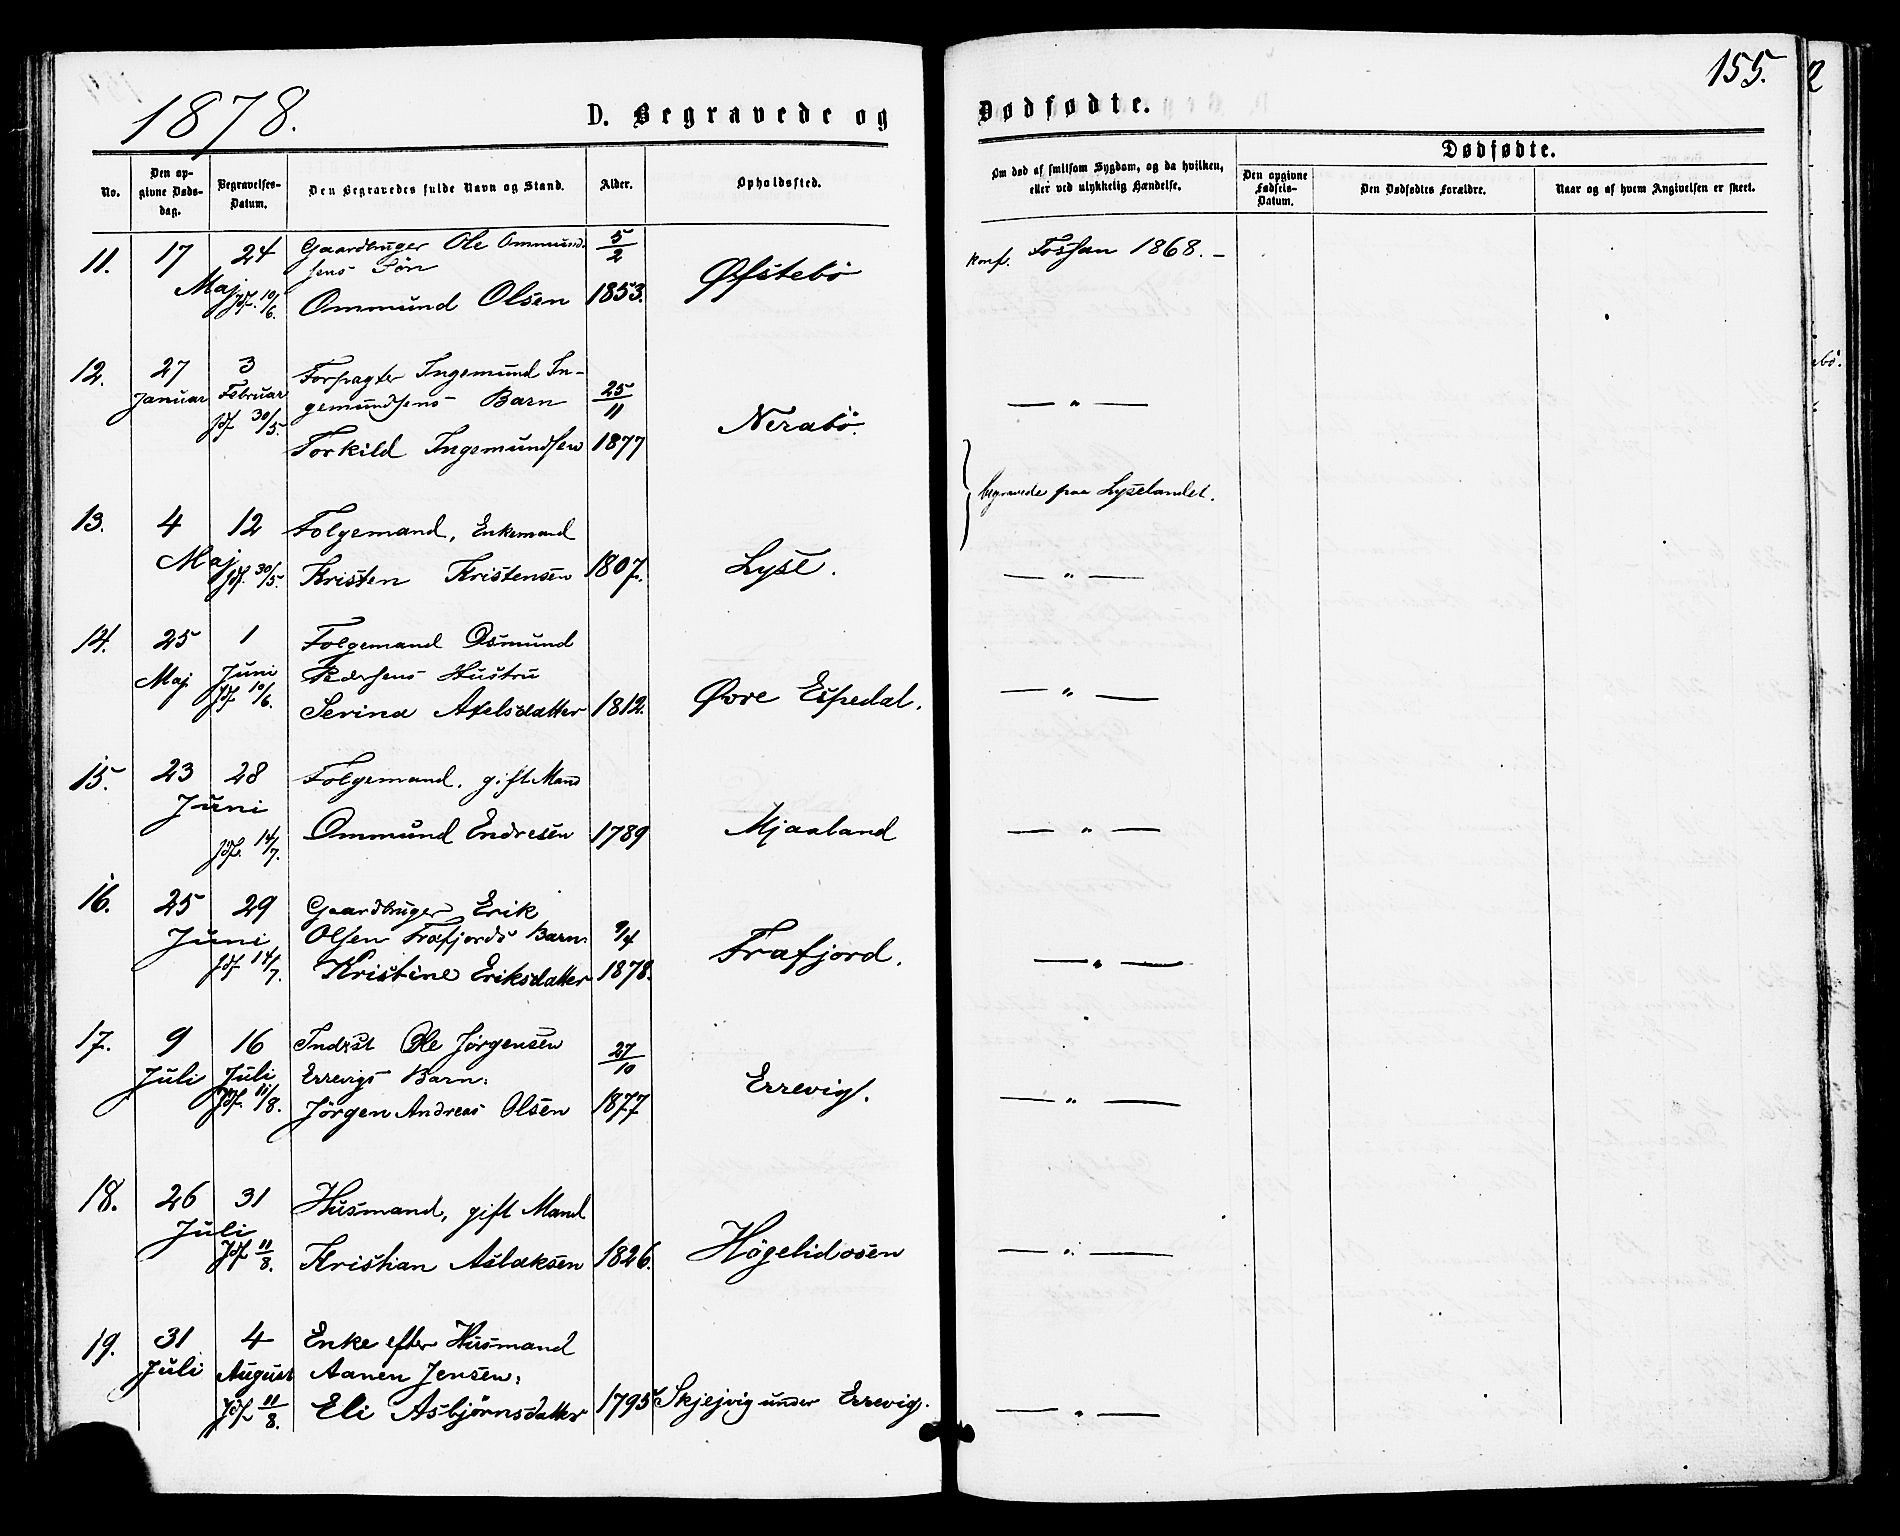 155.
1878.
D. Begravede og Dødfødte.
No.
Den opgivne Dødsdag.
Begravelses-Datum.
Den Begravedes fulde Navn og Stand.
Alder.
Opholdssted.
Om død af smitsom Sygdom, og da hvilken, eller ved ulykkelig Hændelse.
Dødfødte.
Den opgivne Fødsels-Datum.
Den Dødfødtes Forældre.
Naar og af hvem Angivelsen er skeet.
11. 17 24 Gaardbruger Ole Ommund- 5/2
sens Søn Øfstebø konf. Fossan 1868. –
Maj Jdf. 10/6. Ommund Olsen 1853.
12. 27 3 Forpagter Ingemund In-
Januar Februar gemundsens Barn 25/11 — " —
Jdf 30/5. Torkild Ingemundsen 1877 Nerabø.
begravede paa Lyselandet.
13. 4 12 Folgemand, Enkemand
Maj Jdf. 30/5. Kristen Kristensen 1807. Lyse. — " —
14. 25 1 Folgemand Osmund
Maj Juni Pedersens Hustru
Jdf 10/6. Serina Axelsdatter 1812. Øvre Espedal. — " —
15. 23 28 Folgemand, gift Mand
Juni
Jdf. 14/7. Ommund Endresen 1789 Mjaaland — " —
16. 25 29 Gaardbruger Erik
Juni Olsen Frafjords Barn: 9/4
Jdf 14/7. Kristine Eriksdatter 1878. Frafjord. — " —
17. 9 16 Inderst Ole Jørgensen 27/10
Juli Juli Errevigs Barn: Errevig.
Jdf. 11/8. Jørgen Andreas Olsen 1877 — " —
18. 26 31 Husmand, gift Mand
Juli
Jdf 11/8. Kristian Aslaksen 1826. Høgelidosen — " —
19. 31 4 Enke efter Husmand
Juli August Aanen Jensen:
Jdf 11/8. Eli Asbjørnsdatter 1795 Skjejvig under Errevig. — " —